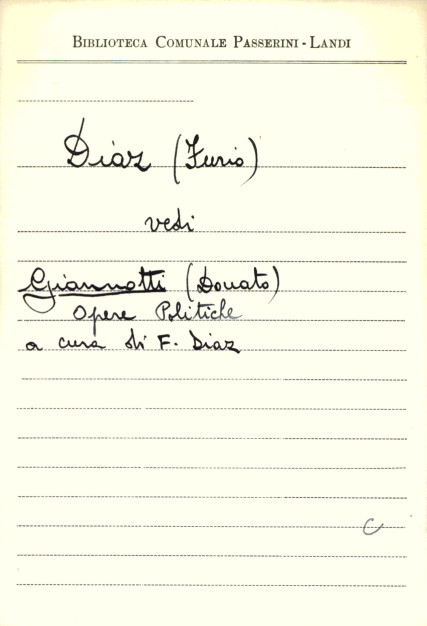 BIBLIOTECA COMUNALE PASSERINI - LANDI
Diaz (Furio)
vedi
Giannotti (Donato)
Opere Politiche
a cura di F. Diaz
C